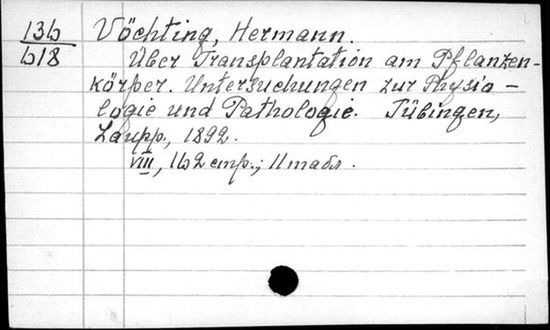 136
618
Vöchting, Hermann.
Über Transplantation am Pflanzen-
körper. Untersuchungen zur Physio-
logie und Pathologie. Tübingen,
Laupp., 1892.
VIII, 162 стр.; 11 табл.